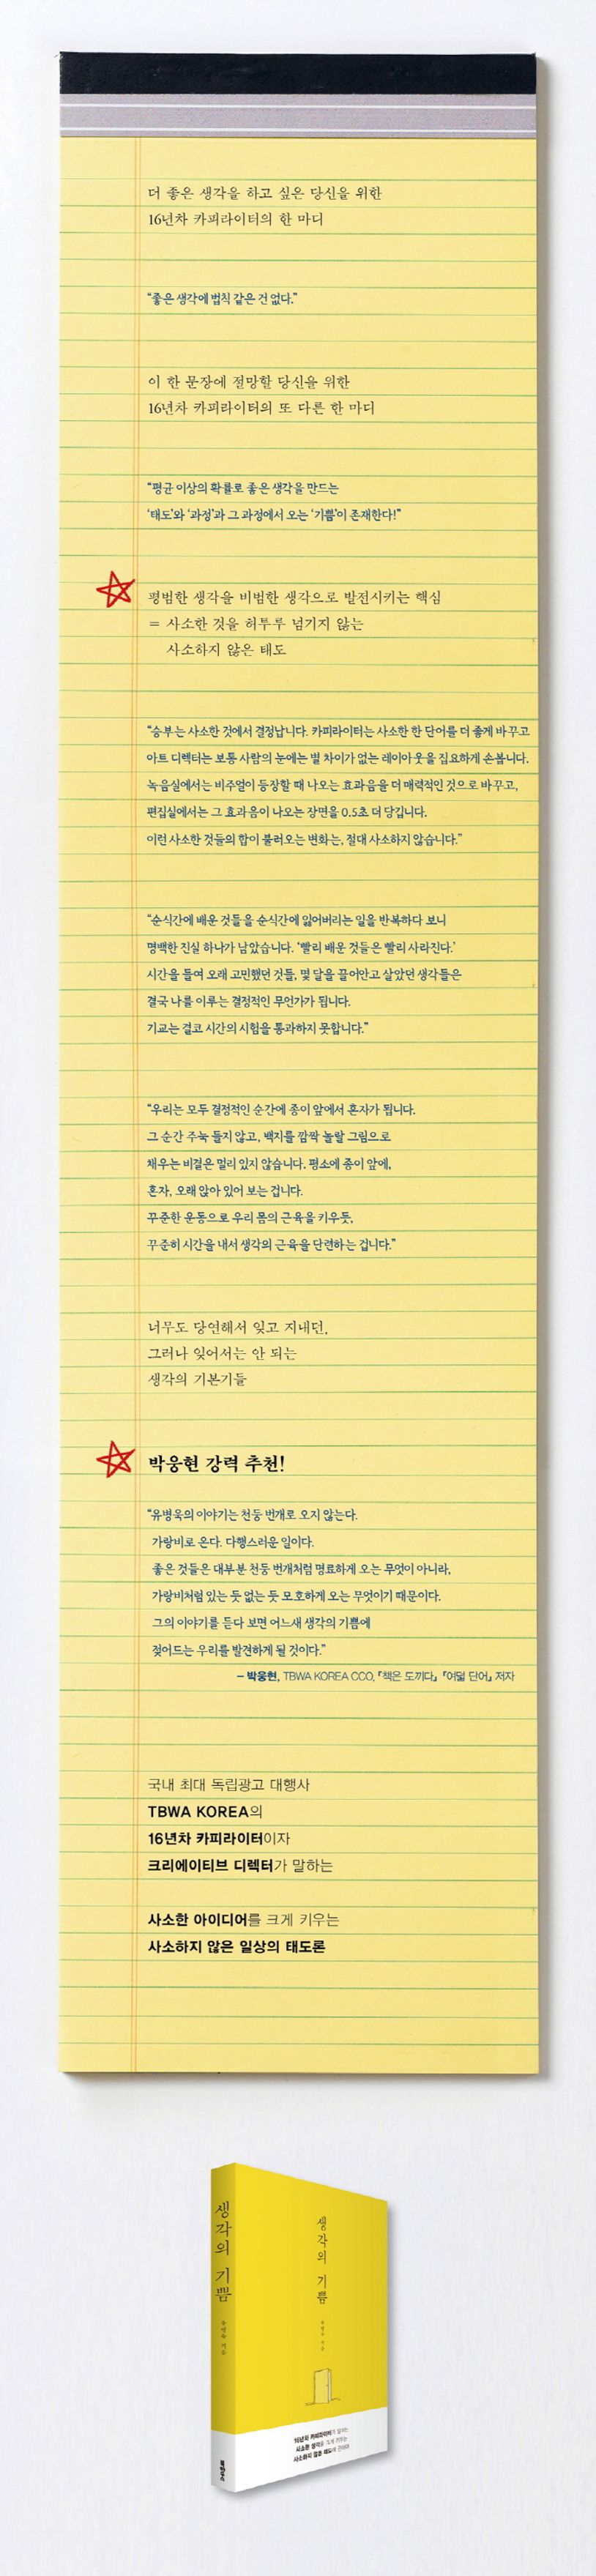 더 좋은 생각을 하고 싶은 당신을 위한
16년차 카피라이터의 한 마디
“좋은 생각에 법칙 같은 건 없다.”
이 한 문장에 절망할 당신을 위한
16년차 카피라이터의 또 다른 한 마디
“평균 이상의 확률로 좋은 생각을 만드는
‘태도’와 ‘과정’과 그 과정에서 오는 ‘기쁨’이 존재한다!”
평범한 생각을 비범한 생각으로 발전시키는 핵심
= 사소한 것을 허투루 넘기지 않는
사소하지 않은 태도
“승부는 사소한 것에서 결정납니다. 카피라이터는 사소한 한 단어를 더 좋게 바꾸고
아트 디렉터는 보통 사람의 눈에는 별 차이가 없는 레이아웃을 집요하게 손봅니다.
녹음실에서는 비주얼이 등장할 때 나오는 효과음을 더 매력적인 것으로 바꾸고,
편집실에서는 그 효과음이 나오는 장면을 0.5초 더 당깁니다.
이런 사소한 것들의 합이 불러오는 변화는, 절대 사소하지 않습니다.”
“순식간에 배운 것들을 순식간에 잃어버리는 일을 반복하다 보니
명백한 진실 하나가 남았습니다. ‘빨리 배운 것들은 빨리 사라진다.’
시간을 들여 오래 고민했던 것들, 몇 달을 끌어안고 살았던 생각들은
결국 나를 이루는 결정적인 무언가가 됩니다.
기교는 결코 시간의 시험을 통과하지 못합니다.”
“우리는 모두 결정적인 순간에 종이 앞에서 혼자가 됩니다.
그 순간 주눅 들지 않고, 백지를 깜짝 놀랄 그림으로
채우는 비결은 멀리 있지 않습니다. 평소에 종이 앞에,
혼자, 오래 앉아 있어 보는 겁니다.
꾸준한 운동으로 우리 몸의 근육을 키우듯,
꾸준히 시간을 내서 생각의 근육을 단련하는 겁니다.”
너무도 당연해서 잊고 지내던,
그러나 잊어서는 안 되는
생각의 기본기들
박웅현 강력 추천!
“유병욱의 이야기는 천둥 번개로 오지 않는다.
가랑비로 온다. 다행스러운 일이다.
좋은 것들은 대부분 천둥 번개처럼 명료하게 오는 무엇이 아니라,
가랑비처럼 있는 듯 없는 듯 모호하게 오는 무엇이기 때문이다.
그의 이야기를 듣다 보면 어느새 생각의 기쁨에
젖어드는 우리를 발견하게 될 것이다.”
– 박웅현, TBWA KOREA CCO, 『책은 도끼다』 『여덟 단어』 저자
국내 최대 독립광고 대행사
TBWA KOREA의
16년차 카피라이터이자
크리에이티브 디렉터가 말하는
사소한 아이디어를 크게 키우는
사소하지 않은 일상의 태도론
생각의 기쁨
유병욱 지음
북하우스
생각의 기쁨
유병욱 지음
16년차 카피라이터가 말하는
사소한 생각을 크게 키우는